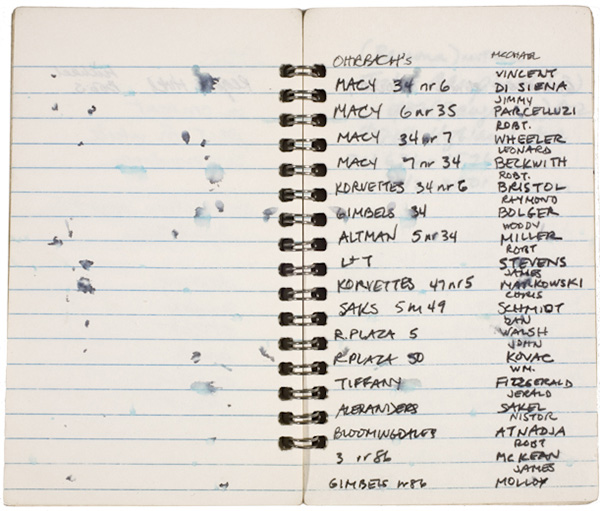 OHRBACH'S MICHAEL
VINCENT
MACY 34 nr 6 DI SIENA
JIMMY
MACY 6 nr 35 PARCELLUZI
ROBT.
MACY 34 nr 7 WHEELER
LEONARD
MACY 7 nr 34 BECKWITH
ROBT.
KORVETTES 34 nr 6 BRISTOL
RAYMOND
GIMBELS 34 BOLGER
WOODY
ALTMAN 5 nr 34 MILLER
ROBT
L+T STEVENS
JAMES
KORVETTES 47 nr 5 NARKOWSKI
CHRIS
SAKS 5 nr 49 SCHMIDT
DAN
R. PLAZA 5 WALSH
JOHN
R. PLAZA 50 KOVAC
WM.
TIFFANY FITZGERALD
JERALD
ALEXANDERS SAKEL
NISTOR
BLOOMINGDALES ATNADJA
ROBT
3 nr 86 MCKEAN
JAMES
GIMBELS nr 86 MOLLOY